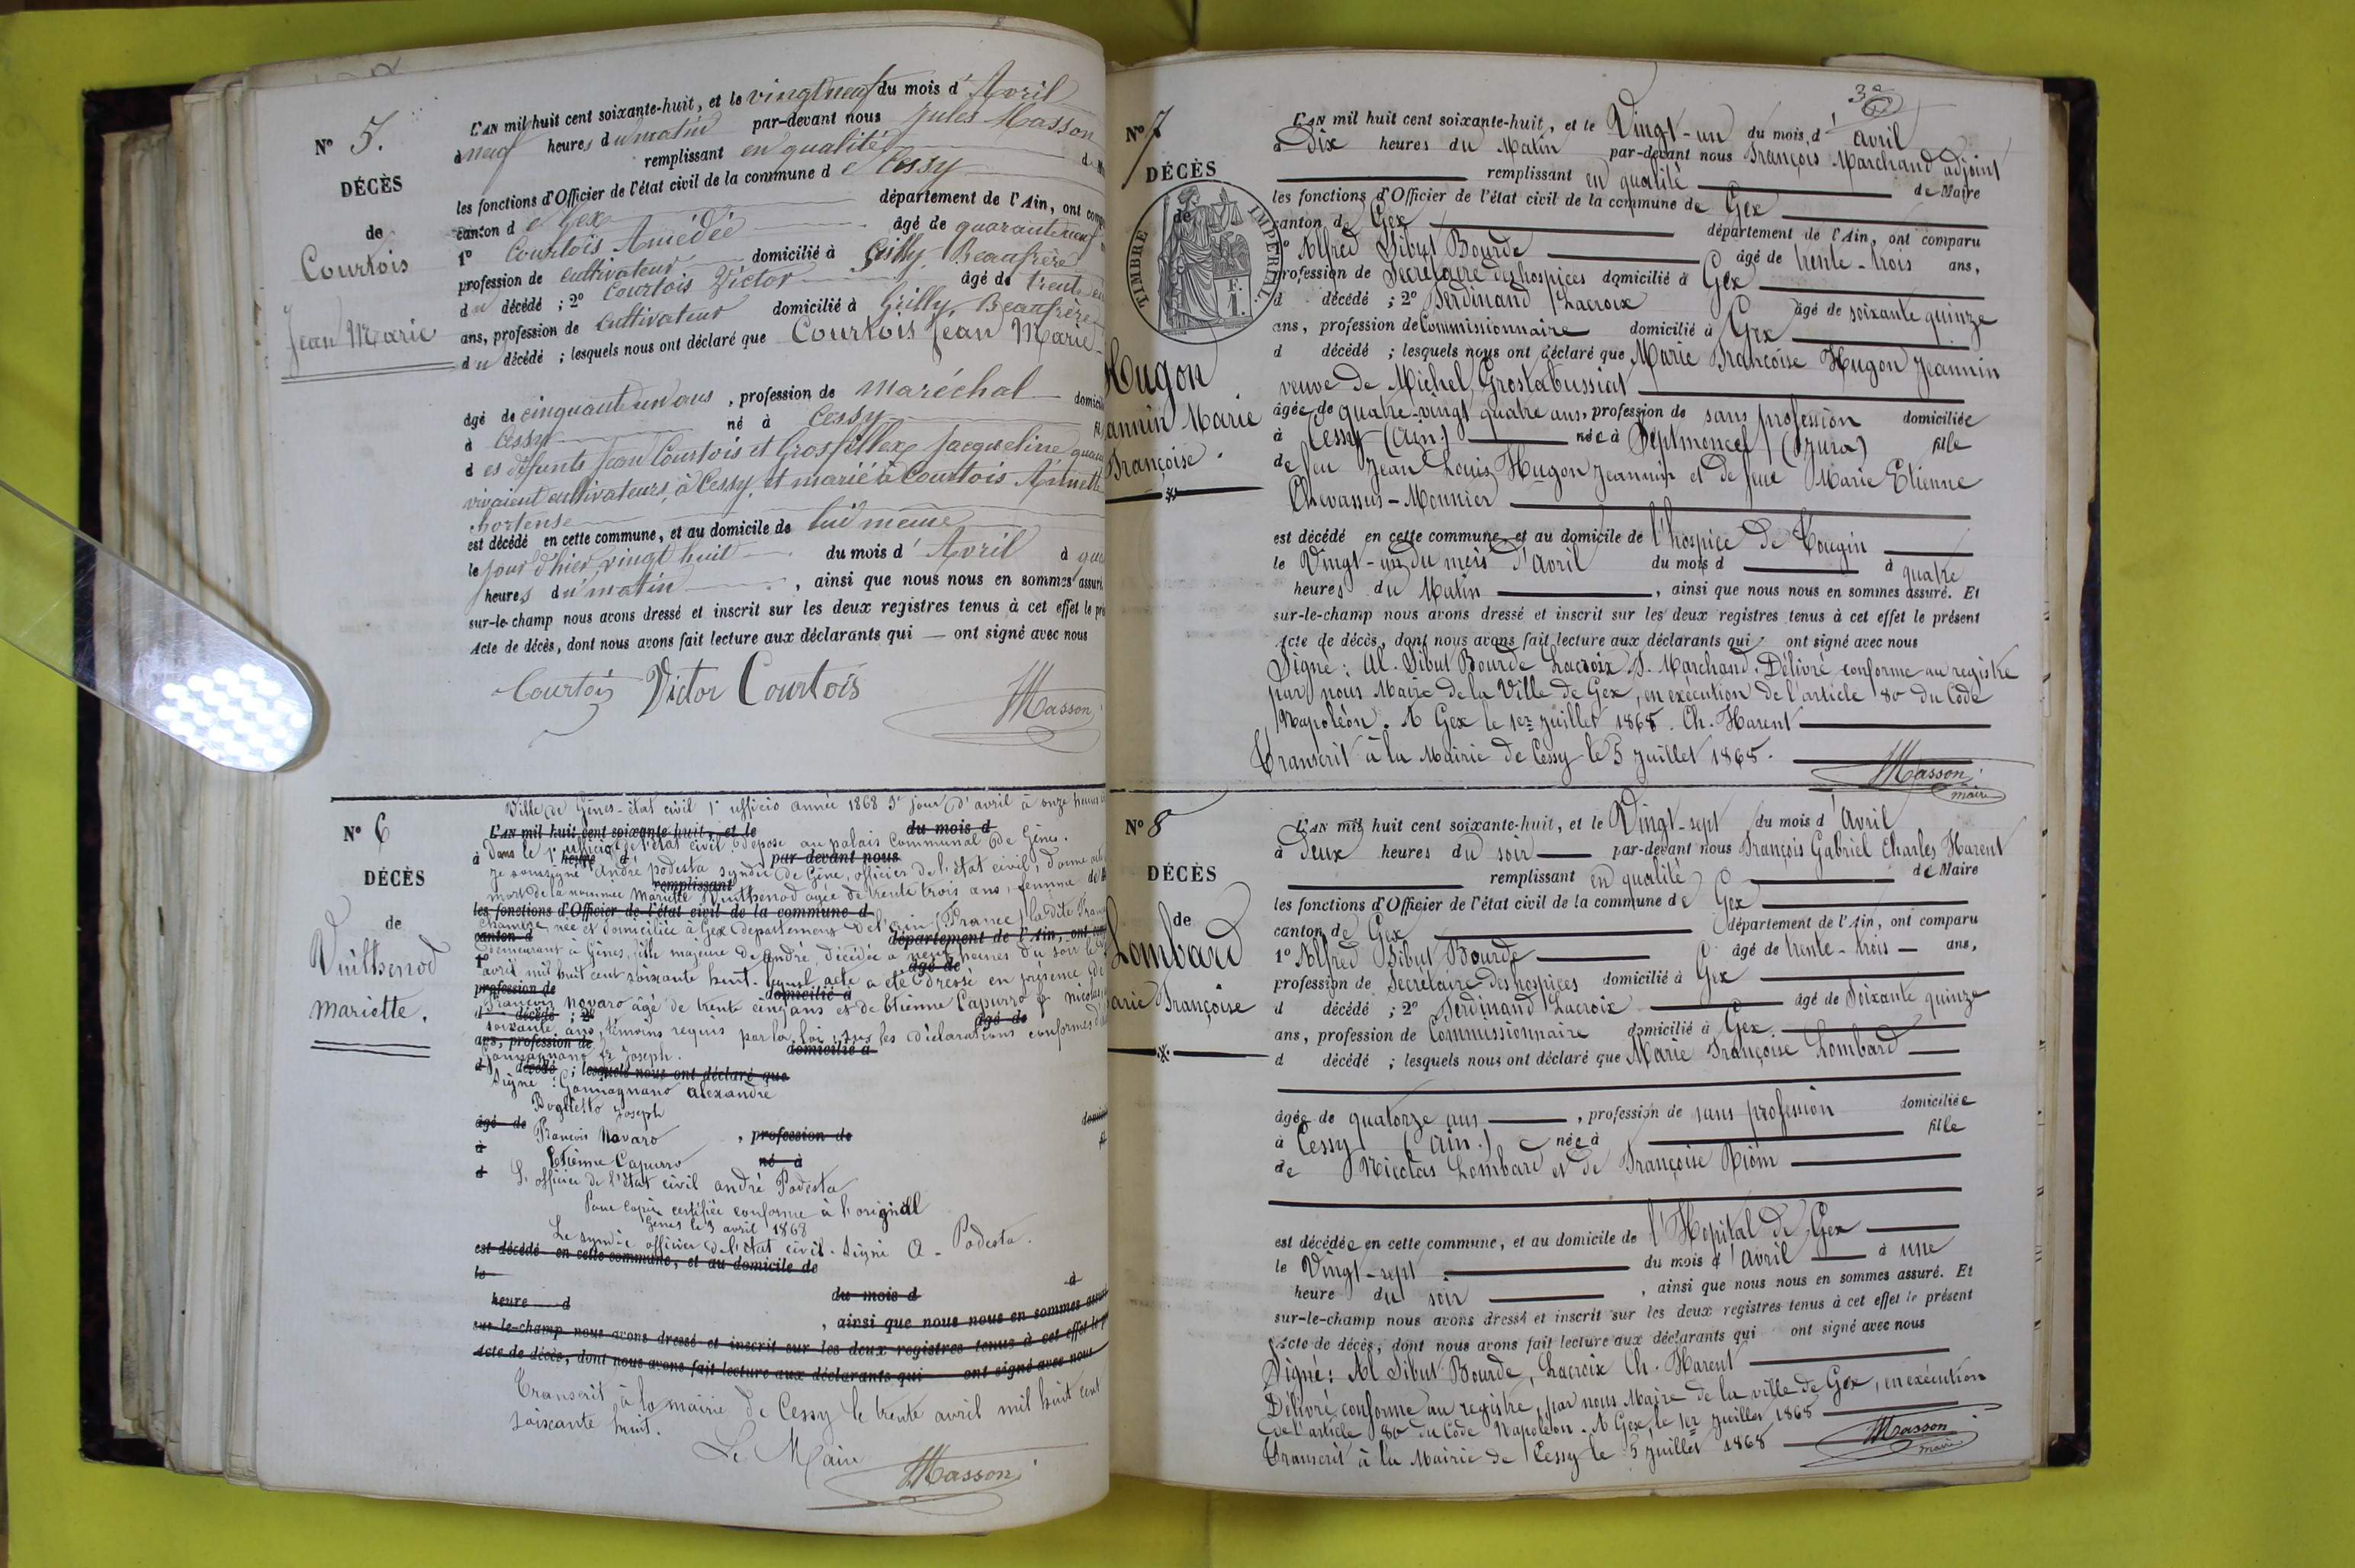 N° 5.
DÉCÈS
de
Courtois
Jean Marie
L'AN mil huit cent soixante-huit, et le vingt neuf du mois d'Avril
à neuf heures du matin par-devant nous Jules Masson
remplissant en qualité d
les fonctions d'Officier de l'état civil de la commune de Cessy
canton de Gex département de l'Ain, ont
1° Courtois Amédée âgé de quarante neuf
profession de cultivateur domicilié à Grilly, Beaufrère
du décédé ; 2° Courtois Victor âgé de trente
ans, profession de cultivateur domicilié à Grilly, Beaufrère
du décédé ; lesquels nous ont déclaré que Courtois Jean Marie
âgé de cinquante un ans, profession de maréchal
à Cessy né à Cessy
des défunts Jean Courtois et Grosfillex Jacqueline
vivaient cultivateurs, à Cessy, et marié à Courtois
hortense
est décédé en cette commune, et au domicile de lui même
le jour d'hier vingt huit du mois d'Avril à
heures du matin, ainsi que nous nous en sommes
sur-le-champ nous avons dressé et inscrit sur les deux registres tenus à cet effet le
Acte de décès, dont nous avons fait lecture aux déclarants qui — ont signé avec nous
Courtois Victor Courtois
JMasson
N° 6
DÉCÈS
de
Vuithenod
Mariette.
Ville de Gênes - état civil 1er ufficio année 1868 3e jour d'avril à onze heures
L'AN mil huit cent soixante-huit, et le du mois d
à Dans le 1er ufficio de l'état civil déposé au palais Communal de Gênes.
heure d par-devant nous
Je soussigné André podesta syndic de Gêne, officier de l'état civil, donne
remplissant
mort de la nommée Mariette Vuithenod agée de trente trois ans, femme de
les fonctions d'Officier de l'état civil de la commune d
chambre née et domiciliée à Gex département de l'ain (France) la dite
canton d département de l'Ain, ont
demeurant à Gênes, fille majeure de André, décédée à neuf heures du soir le
1° âgé de
avril mil huit cent soixante huit. acte a été dressé en présence de
profession de domicilié à
François Novaro âgé de trente cinq ans et de Etienne Capurro
d décédé ; 2° âgé de
soixante ans, témoins requis par la loi, sur les déclarations conformes
ans, profession de domicilié à
Gonnagnano Joseph.
d décédé ; lesquels nous ont déclaré que
Signé : Gonnagnano Alexandre
Boglietto Joseph
âgé de François Novaro, profession de
à Etienne Capurro né à
d L'officier de l'état civil andré Podesta
Pour Copie certifiée conforme à l'original
Gênes le 3 avril 1868
Le syndic officier de l'état civil. Signé A. Podesta.
est décédé en cette commune, et au domicile de
le du mois d à
heure d, ainsi que nous nous en sommes
sur-le-champ nous avons dressé et inscrit sur les deux registres tenus à cet effet
Acte de décès, dont nous avons fait lecture aux déclarants qui ont signé avec nous
Transcrit à la mairie de Cessy le trente avril mil huit cent
soixante huit.
Le Maire
JMasson
N° 7
DÉCÈS
de
TIMBRE IMPÉRIAL
F.
1.
Hugon
annin Marie
Françoise.
L'AN mil huit cent soixante-huit, et le Vingt-un du mois d'avril
à Dix heures du Matin par-devant nous François Marchand adjoint
remplissant en qualité de Maire
les fonctions d'Officier de l'état civil de la commune de Gex
canton de Gex département de l'Ain, ont comparu
1° Alfred Sibut Bourde âgé de trente-trois ans,
profession de Secrétaire des hospices domicilié à Gex
d décédé ; 2° Ferdinand Lacroix âgé de soixante quinze
ans, profession de Commissionnaire domicilié à Gex
d décédé ; lesquels nous ont déclaré que Marie Françoise Hugon Jeannin
veuve de Michel Grostabussiat
âgée de quatre-vingt quatre ans, profession de sans profession domiciliée
à Cessy (Ain) née à Septmoncel (Jura) fille
de feu Jean Louis Hugon Jeannin et de feue Marie Etienne
Chevassus-Monnier
est décédé en cette commune, et au domicile de l'hospice de Tougin
le Vingt-un du mois d'Avril du mois d à quatre
heures du Matin, ainsi que nous nous en sommes assuré. Et
sur-le-champ nous avons dressé et inscrit sur les deux registres tenus à cet effet le présent
Acte de décès, dont nous avons fait lecture aux déclarants qui ont signé avec nous
Signé : Al. Sibut Bourde Lacroix F. Marchand. Délivré conforme au registre
par nous Maire de la Ville de Gex, en exécution de l'article 80 du Code
Napoléon. A Gex le 1er Juillet 1868. Ch. Harent
Transcrit à la Mairie de Cessy le 5 Juillet 1868.
JMasson
maire
N° 8
DÉCÈS
de
Lombard
arie Françoise
L'AN mil huit cent soixante-huit, et le Vingt-sept du mois d'Avril
à Deux heures du soir par-devant nous François Gabriel Charles Harent
remplissant en qualité de Maire
les fonctions d'Officier de l'état civil de la commune de Gex
canton de Gex département de l'Ain, ont comparu
1° Alfred Sibut Bourde âgé de trente-trois ans,
profession de Secrétaire des hospices domicilié à Gex
d décédé ; 2° Ferdinand Lacroix âgé de Soixante quinze
ans, profession de Commissionnaire domicilié à Gex.
d décédé ; lesquels nous ont déclaré que Marie Françoise Lombard
âgée de quatorze ans, profession de sans profession domiciliée
à Cessy (Ain.) née à fille
de Nicolas Lombard et de Françoise Riom
est décédée en cette commune, et au domicile de l'Hopital de Gex
le Vingt-sept du mois d'avril à une
heure du soir, ainsi que nous nous en sommes assuré. Et
sur-le-champ nous avons dressé et inscrit sur les deux registres tenus à cet effet le présent
Acte de décès, dont nous avons fait lecture aux déclarants qui ont signé avec nous
Signé : Al Sibut Bourde, Lacroix Ch. Harent
Délivré conforme au registre, par nous Maire de la ville de Gex, en exécution
de l'article 80 du Code Napoléon. A Gex, le 1er Juillet 1868
Transcrit à la Mairie de Cessy le 5 Juillet 1868
JMasson
maire